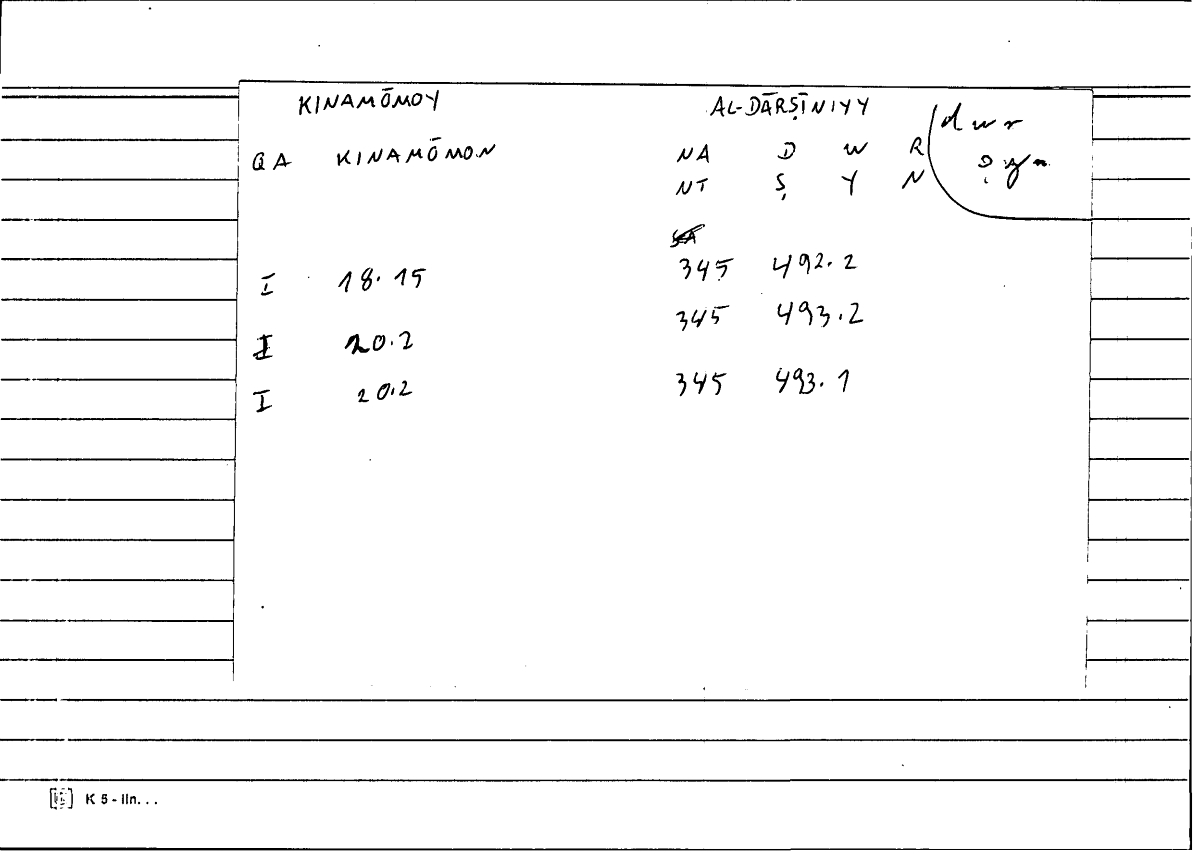 KINAMŌMOY AL-DĀRṢĪNIYY
QA KINAMŌMON NA D W R dwr
NT Ṣ Y N ṣyn
I 18.15 345 492.2
345 493.2
I 20.2
I 20.2 345 493.1
K 5 - IIn. . .